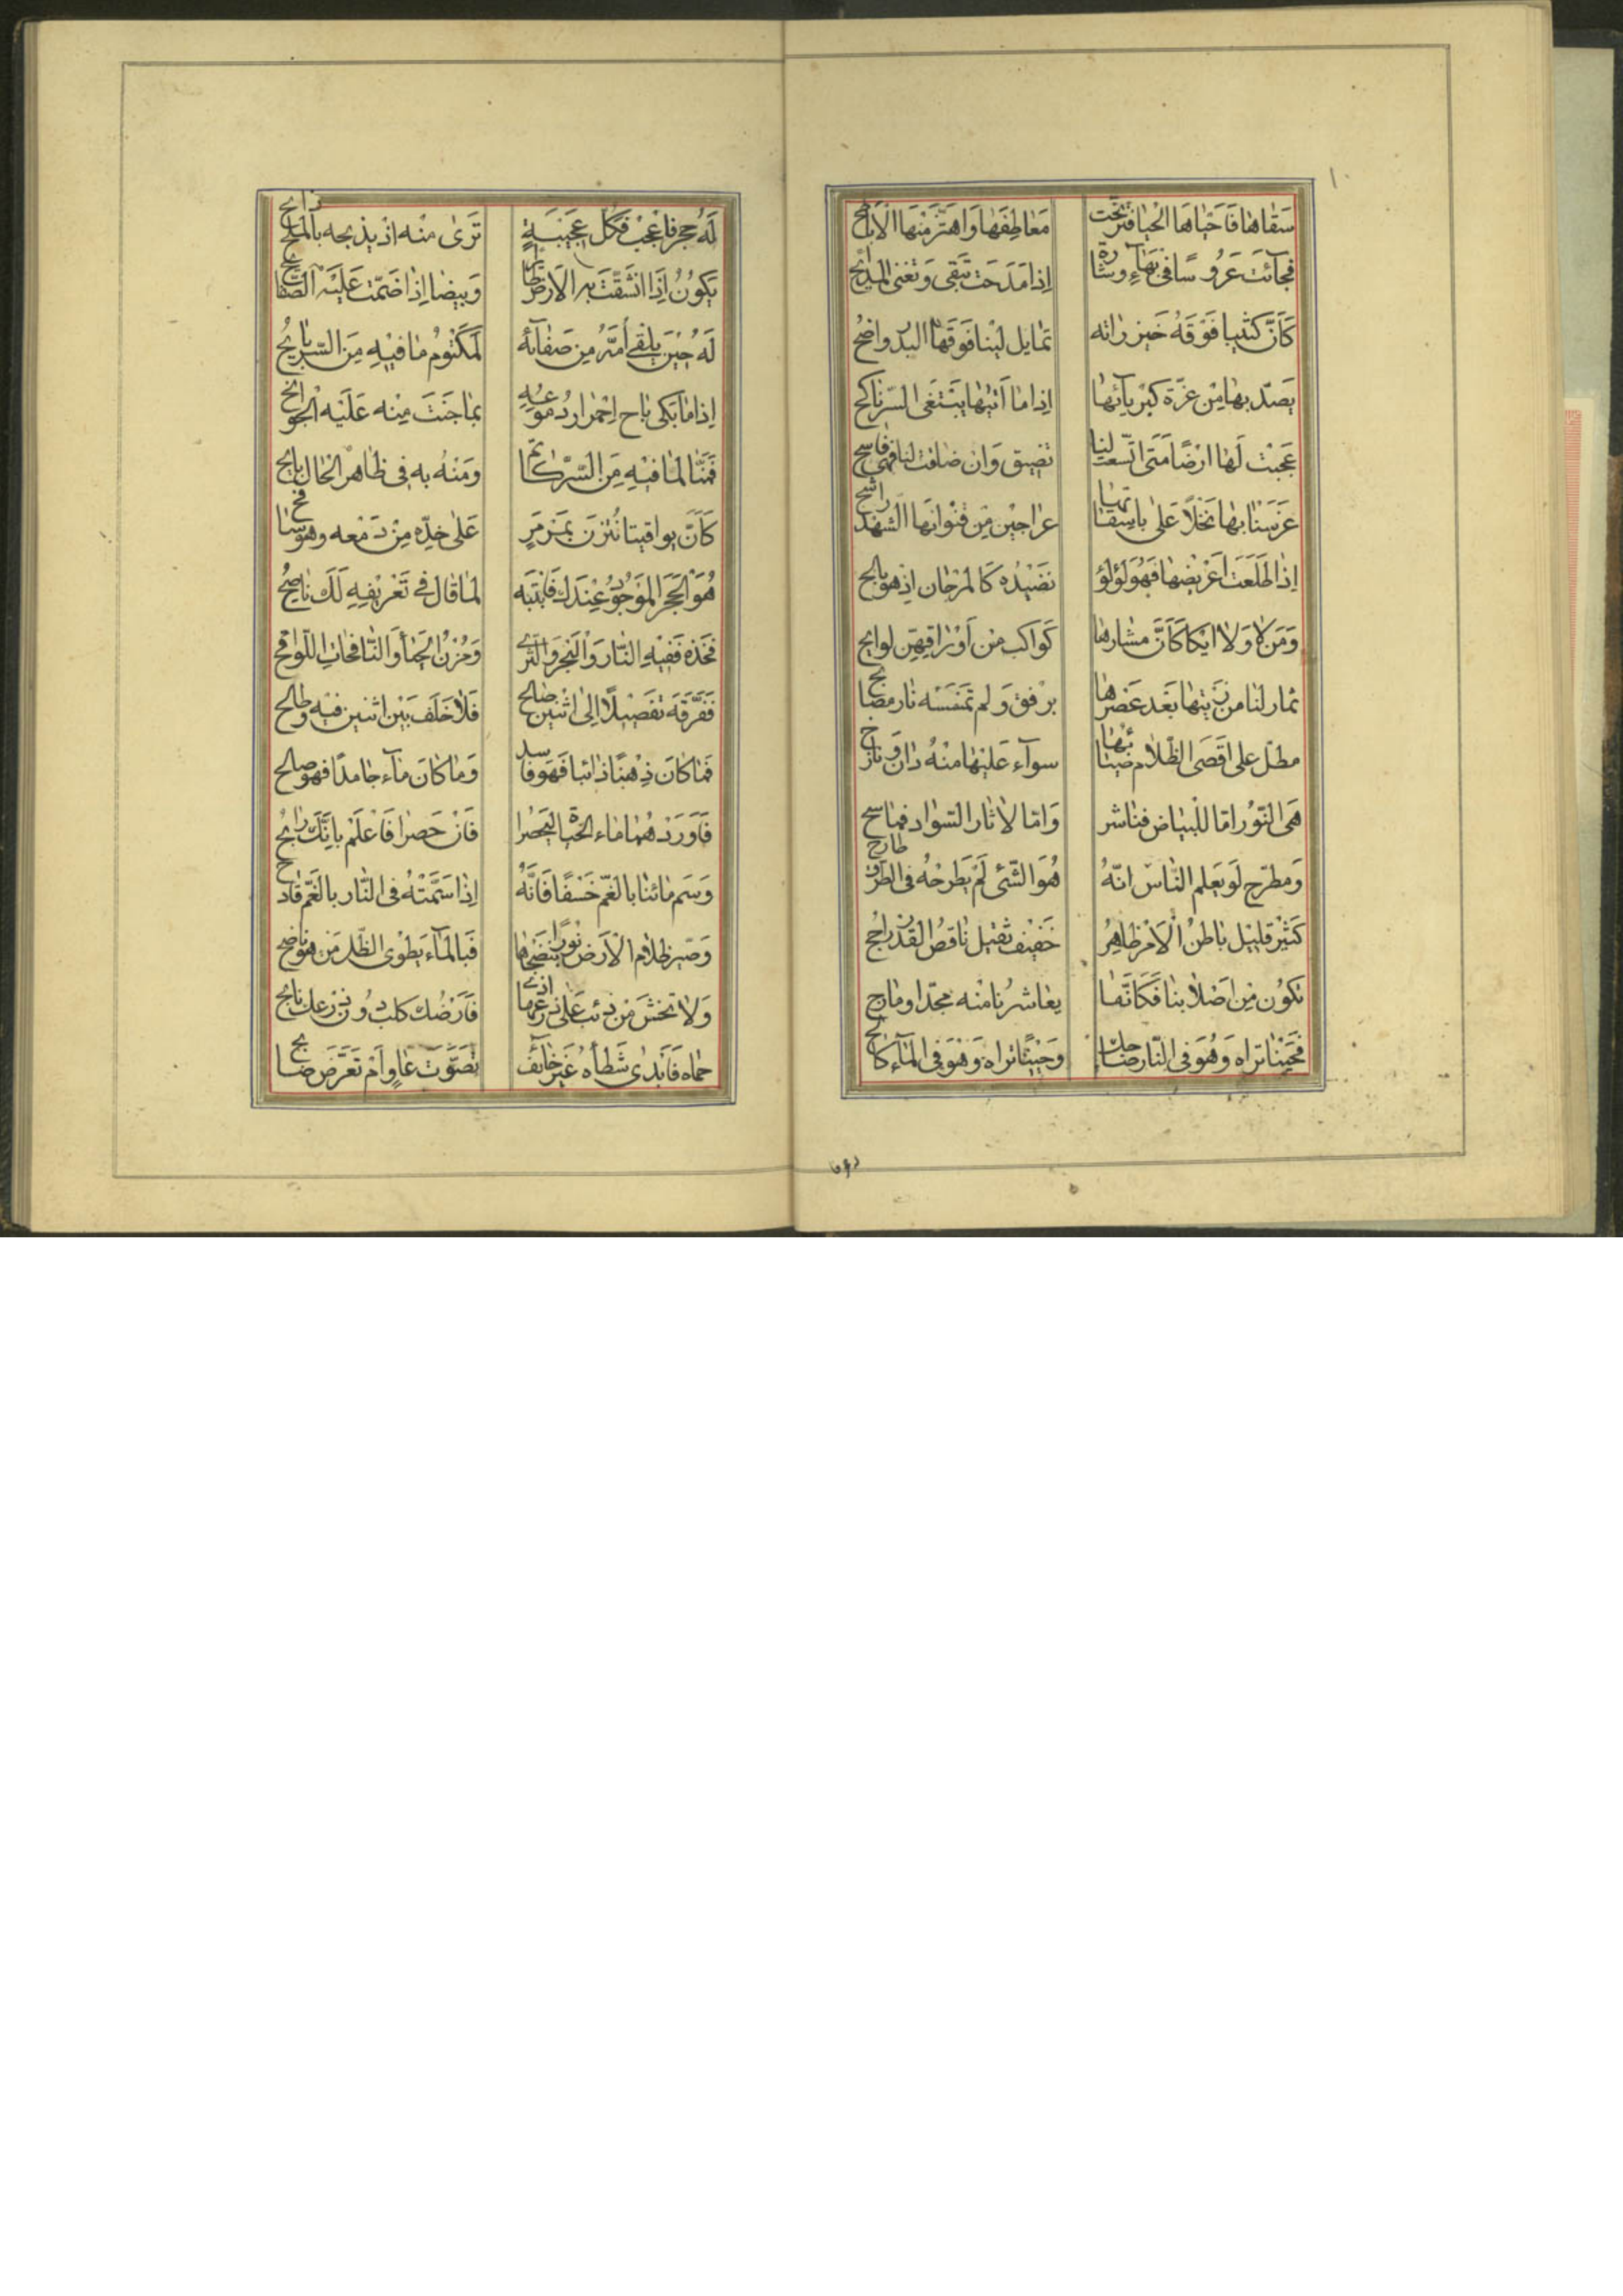 سَقٰاهٰا فَاَحْيٰاهَا الْحَيٰا فَتَرَنَّحَت مَعٰاطِفَهٰا وَاهْتَزَّ مِنْهَا الْاَبٰاطِحُ
فَجٰآئَت عَرُوسًا فى بَهٰآءٍ وشٰارَة اِذٰا مَدَحَت تَبْقى وَتفنى المدٰايحُ
كَاَنَّ كثيبا فَوْقَهُ خَيزرٰانه تمٰايل لَيْنا فَوْقَهٰا البدر واضحُ
يَصدّ بهٰا مِنْ عزّة كبْريٰآئهٰا اِذٰا مٰا اَتيْهٰا يَبْتَغى السّر نٰاكح
عَجبْت لَهٰا اَرْضًا مَتى اتّسعت لنٰا تضيق وَان ضٰاقت لنٰا فهى فٰاسح
غَرَسْنٰا بهٰا نَخْلاً عَلىٰ بٰاسِقٰاتهٰا عرٰاجيْن مِن قنْوٰانهٰا الشهْد رٰاشح
اِذٰا طَلَعَت اَغْريْضهٰا فَهْوَ لؤلؤ نَضيْدُه كَالمرْجٰان اذ هو بٰالح
وَمَن لا وَلا اَيكا كَاَنَّ مشٰارهٰا كَوٰاكب من اَوْرٰاقهِنّ لوٰايح
ثمٰار لنٰا من زَيتهٰا بَعْد عَصْرهٰا برفق وَلم تمْسَسْه نٰار مصٰابح
مطلّ على اَقصَى الظّلام ضيٰائهٰا سوآء عَليْهٰا منْهُ دٰان ونٰازح
هىَ النّوْر امّا للبيٰاض فنٰاشر وَامّا لاثٰار السّوٰاد فمٰاسح
وَمطرح لَو يَعلم النّاسْ انّهُ هُوَ الشّئى لَمْ يَطرحْهُ فى الطرق طٰارح
كَثيْر قليْل بٰاطنُ الْاَمْر ظٰاهِرُ خَفيْف ثقيْل نٰاقصُ القَدْر رٰاجحُ
تكوُن مِن اَصْلابنٰا فَكَانّمٰا يعٰاشرُنٰا منْه مجدّ او مٰازح
فَحَيْنٰا ترٰاه وَهُوَ فى النّٰار ضٰاحك وَحَيْنًا ترٰاه وَهْوَ فى المآء كٰالح
لَهُ حجر فاعْجبْ فَكلّ عَجيْبَةٍ تَرىٰ منْه اذ يذبحه بالملح ذٰابح
يَكونُ اِذَا انشَقّتْ بهِ الاَرض وَبيضا اِذٰا ضَمّت عَليْه الصّفٰايح
لَهُ حِيْن يلقىٰ اُمَّهُ مِن صَفٰآئه لمكْتوم مٰا فيْهِ مِنَ السّر بٰايحُ
اِذٰا مٰا بَكى بٰاح احْمرٰار دُموعِهِ بمٰا جَنَت مِنْه عَلَيْه الْجوٰانح
فَمنّا لمٰا فيْهِ مِنَ السّرّ كٰاتم وَمِنْهُ به فى ظٰاهر الحٰال بٰايح
كَاَنّ يوٰاقيتا نُثرْن بمَرْمَرٍ عَلى خدّه مِنْ دَمْعه وهو سٰافح
هُوَ الْحجَر الموْجوُدُ عِنْدك فَانتَبه لمٰا قٰال فى تَعْريْفهِ لَكَ نٰاصحُ
فَخذه فَفيْه النّٰار وَالبَحْر وَالثّرى وَحُزْن الْحَيٰا وَالنّافحٰات اللّوٰاقح
فَفَرّقه تفَصيْلاً اِلى اثْنين صٰالح فَلا خلْف بَيْن اثنين فيْه وطٰالح
فَمٰا كٰان ذِهْبًا ذٰائبا فَهوَ فٰاسد وَمٰا كٰانَ مٰآء جٰامدًا فهو صٰالح
فَاَوْرَدْهُمٰا مٰاء الحيٰاة ليَحصرٰا فَاِنْ حَصرٰا فَاعلَمْ بِانّكَ رٰابحُ
وَسَم مٰائنٰا بالغَمّ خَسْفًا فَانَّهُ اِذٰا سَمّتْهُ فى النّٰار بالغَمّ قٰادح
وَصَيّر ظلامَ الْاَرض نُورًا بنَضْحهٰا فَبالمٰآء يَطْوى الظّل مَن هو نٰاضح
وَلا تخش مَن ذئب عَلىٰ زرْعهٰا اذى فَاَرْضك كلب دُون زرعك نٰابح
حمٰاه فَاَبْدى شَطْاَهُ غَيْر خٰآئف تصَوّت عٰاوٍ اَم تعَرّض ضٰابح